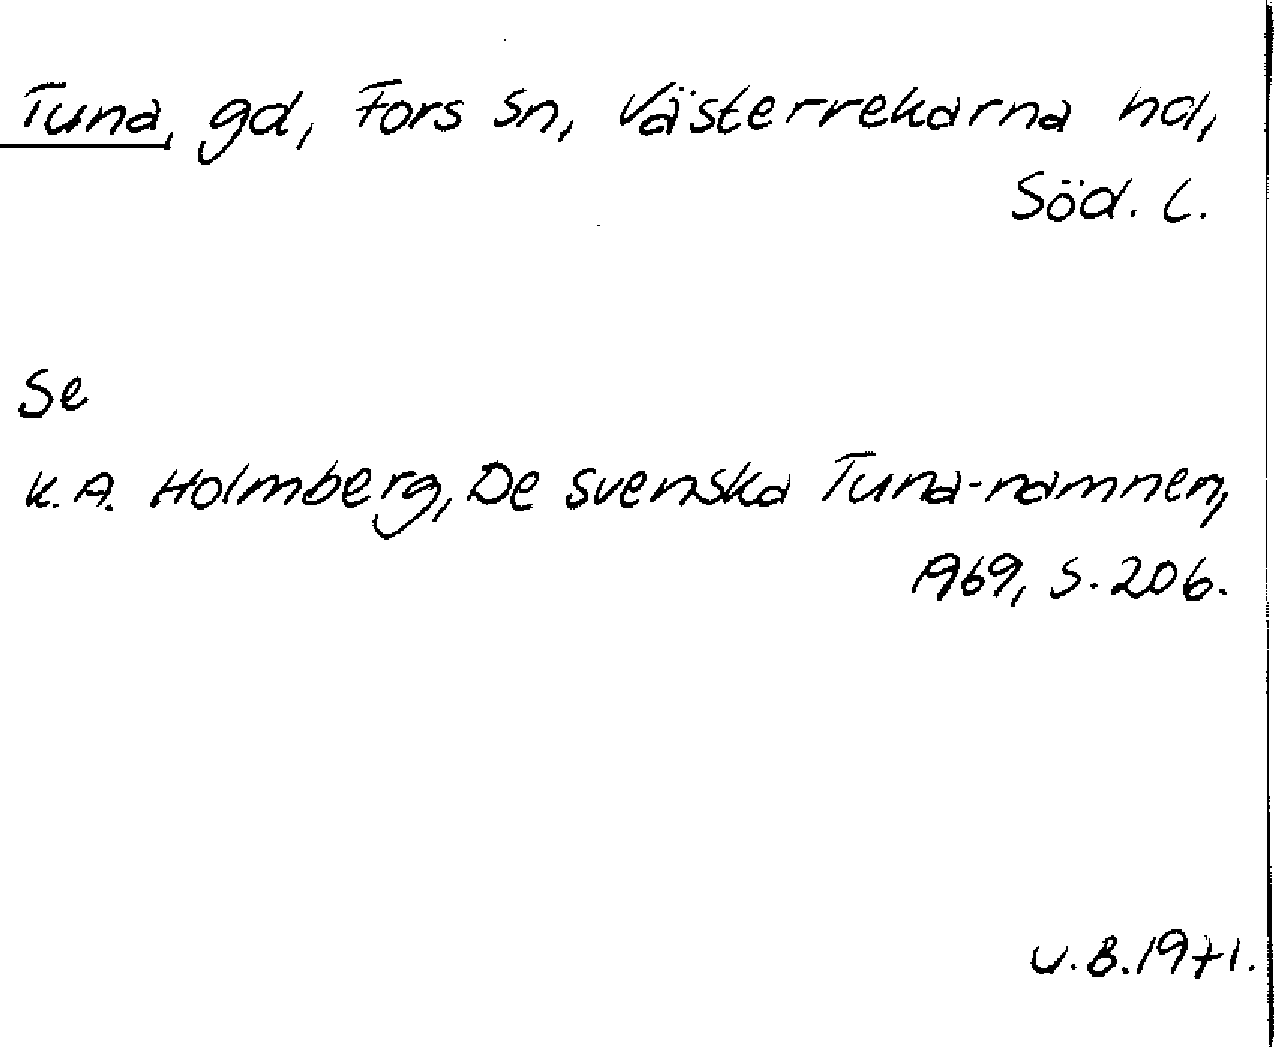 Tuna, gd, Fors sn, Västerrekarna hd,
Söd. l.
Se
K.A. Holmberg, De svenska Tuna-namnen,
1969, s. 206.
U.B. 1971.